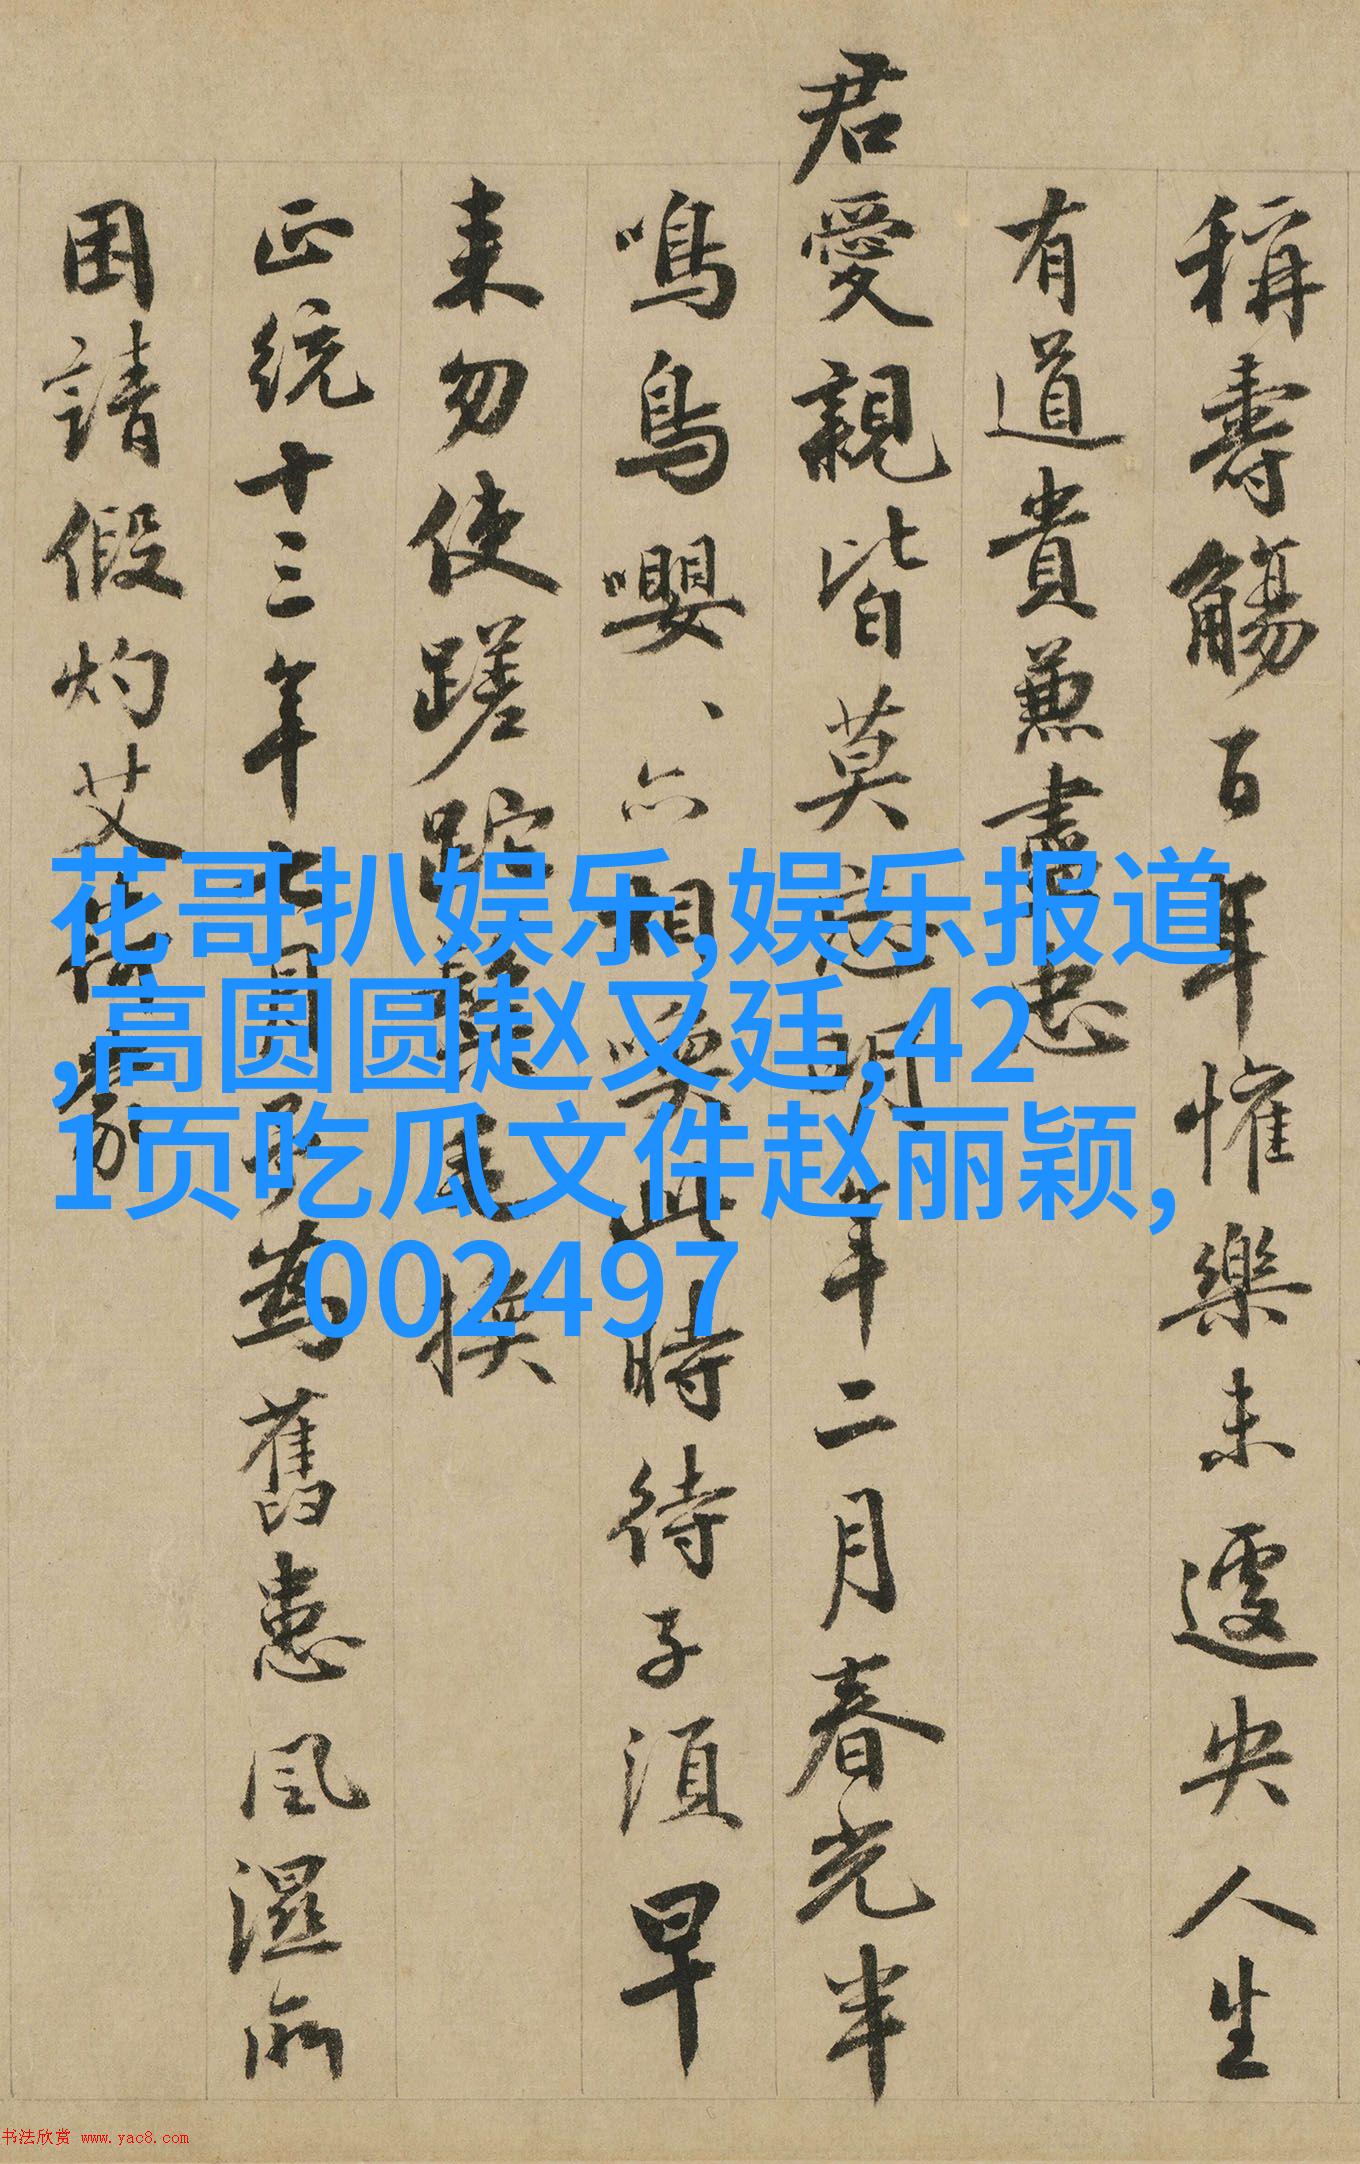 稱壽觴百年懽樂未遽央人生
有道貴兼盡忠
君愛親皆莫忘明年二月春光半
鳴鳥嚶、亦相喚此時待子須早
来勿使蹉跎
換
正統十三年七月予為舊患風濕所
困請假灼艾
花哥扒娱乐,娱乐报道
,高圆圆赵又廷,42
1页吃瓜文件赵丽颖,
002497
书法欣赏 www.yac8.com